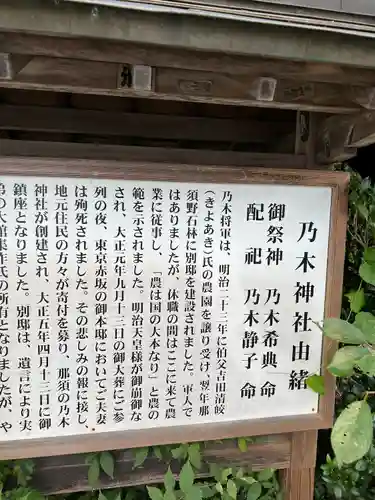 乃木神社由緒
御祭神 乃木希典 命
配祀 乃木静子 命
乃木将軍は、明治二十三年に伯父吉田清皎
(きよあき)氏の農園を譲り受け、翌年那
須野石林に別邸を設されました。軍人で
はありましたが、休職の間はここに来て農
業に従事し、「農は国の大本なり」と農の
範を示されました。明治天皇様が御崩御な
され、大正元年九月十三日の御大葬にご参
列の夜、東京赤坂の御本邸においてご夫妻
は殉死されました。その悲しみの報に接し、
地元住民の方々が寄付を募り、那須の乃木
神社が創建され、大正五年四月十三日に御
鎮座となりました。別邸は、遺言により実
弟の大館集作氏の所有となりましたが、や